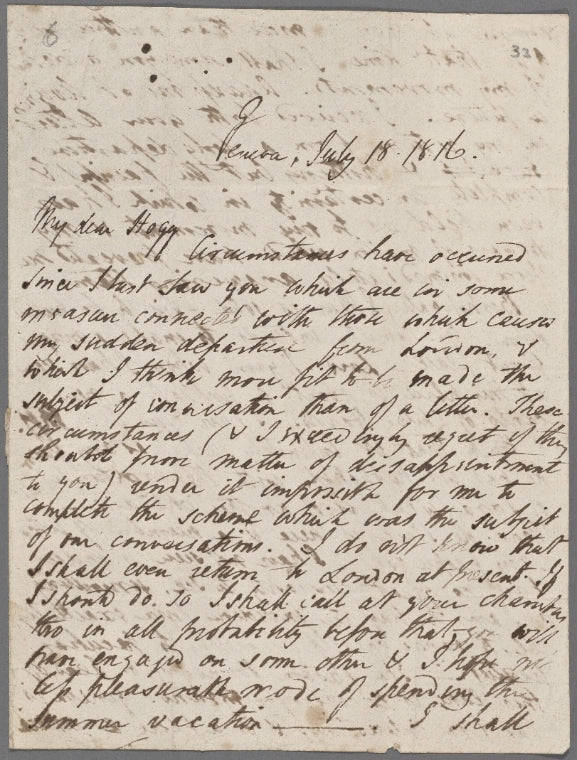 6
32
Geneva, July 18. 1816.
My dear Hogg
Circumstances have occurred
since I last saw you which are in some
measure connected with those which caused
my sudden departure from London, &
which I think more fit to be made the
subject of conversation than of a letter. These
circumstances (& I exceedingly regret if they
should prove matter of dissappointment
to you) render it impossible for me to
complete the scheme which was the subject
of our conversations. I do not know that
I shall even return to London at present. If
I should do so I shall call at your chambers
tho in all probability before that, you will
have engaged on some other & I hope no
less pleasurable mode of spending the
summer vacation ——. I shall